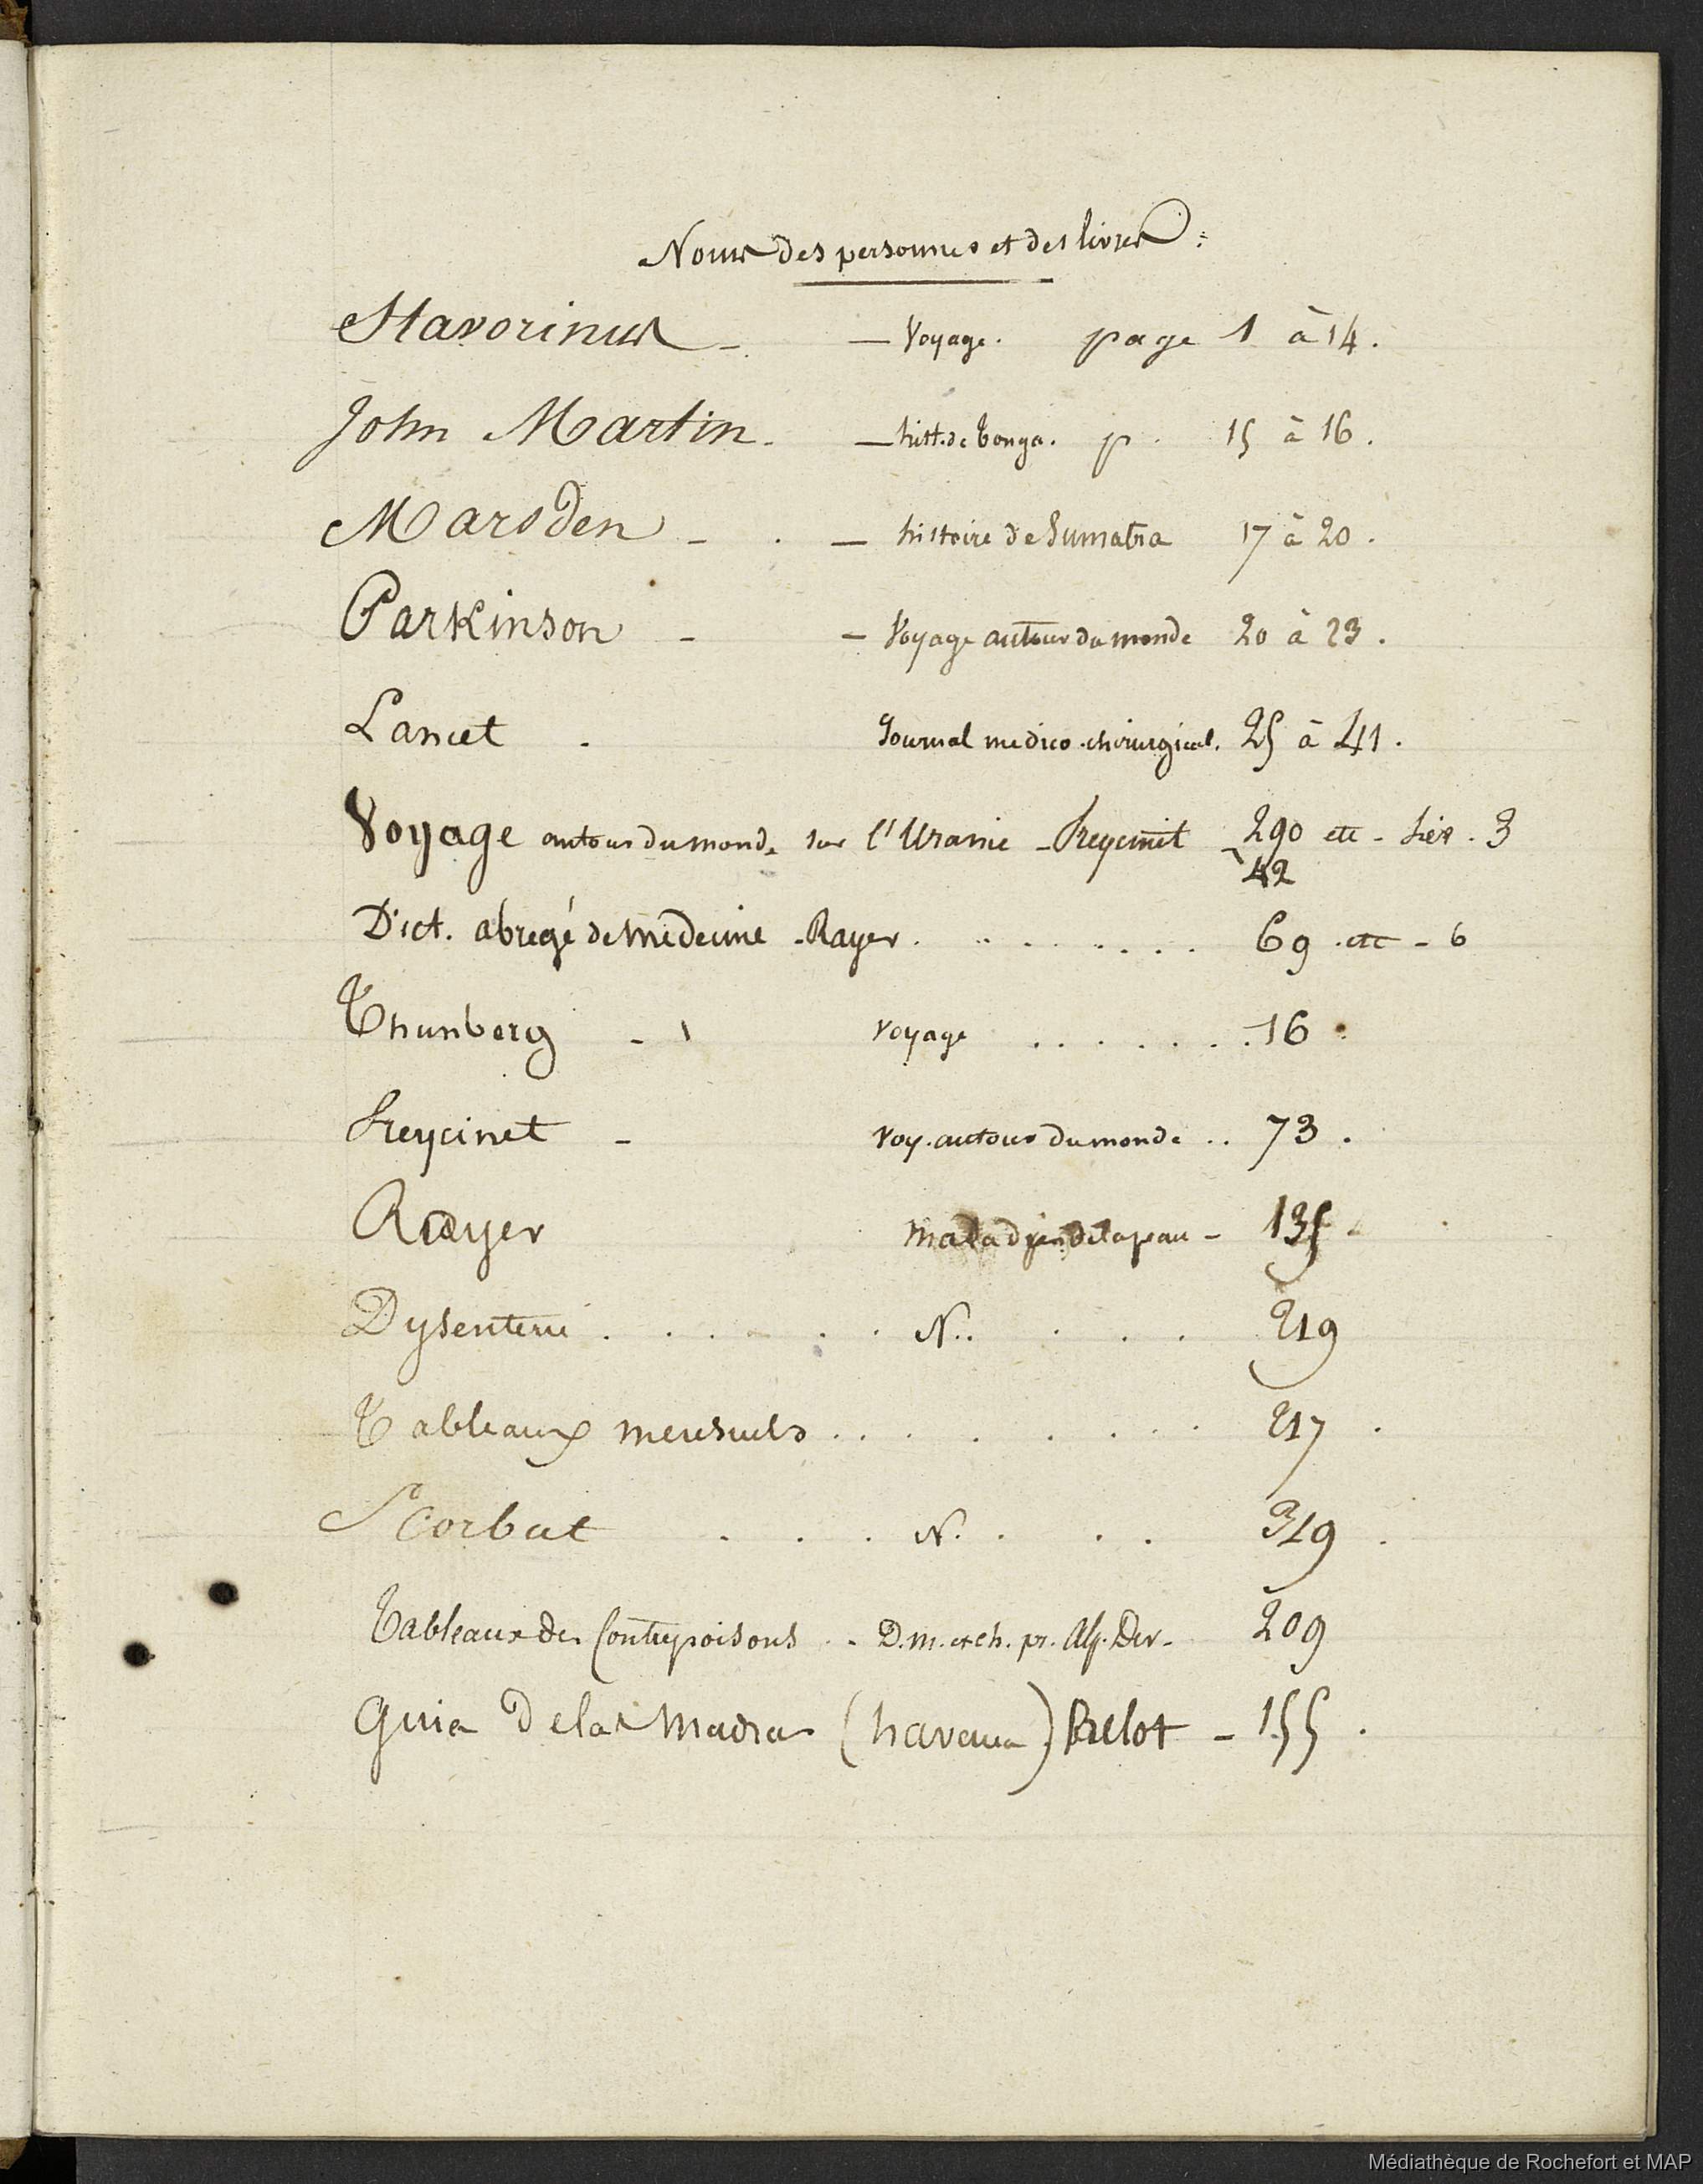 Noms des personnes et des livres :
Stavorinus - — Voyage. page 1 à 14.
John Martin. — hist. de Tonga. p. 15 à 16.
Marsden - . — histoire de Sumatra 17 à 20.
Parkinson - — Voyage autour du monde 20 à 23.
Lancet . Journal medico-chirurgical. 25 à 41.
Voyage autour du monde sur l'Uranie - Freycinet - 290 etc - 3
42
Dict. abregé de médecine - Rayer. . . . . . . . 69 . etc - 6
Thunberg - voyage . . . . . . . 16 .
Freycinet - voy. autour du monde .. 73 .
Rayer maladies de la peau - 135 -
Dysenterie . . . . . . N.. . . . 219
Tableaux mensuels . . . . . . . . 217 .
Scorbut . . . N. . . . 319 .
Tableaux des Contrepoisons . - D. m. et ch. pr. 209
Guia de las Madras (havana) Belot - 155 .
Médiathèque de Rochefort et MAP